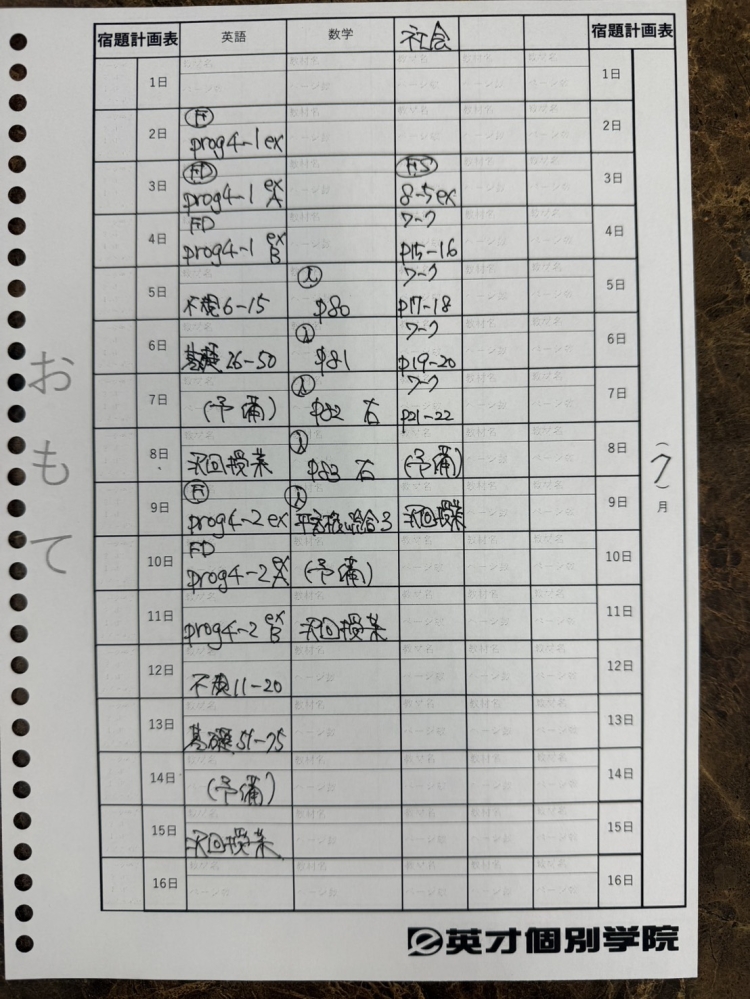 宿題計画表 英語 数学 社会 宿題計画表
1日 1日
2日 Ⓕ 2日
prog4-1 ex
3日 FD FS 3日
prog4-1 ex A 8-5 ex
4日 FD ワーク 4日
prog4-1 ex B p15-16
5日 ワーク 5日
不規6-15 p80 p17-18
6日 ワーク 6日
基礎26-50 p81 p19-20
7日 ワーク 7日
(予備) p82 右 p21-22
8日 8日
次回授業 p83 右 (予備)
9日 Ⓕ 9日
prog4-2 ex 次回授業
10日 FD 10日
prog4-2 ex A (予備)
11日 11日
prog4-2 ex B 次回授業
12日 12日
不規11-20
13日 13日
基礎51-75
14日 14日
(予備)
15日 15日
次回授業
16日 16日
(7)月
おもて
英才個別学院